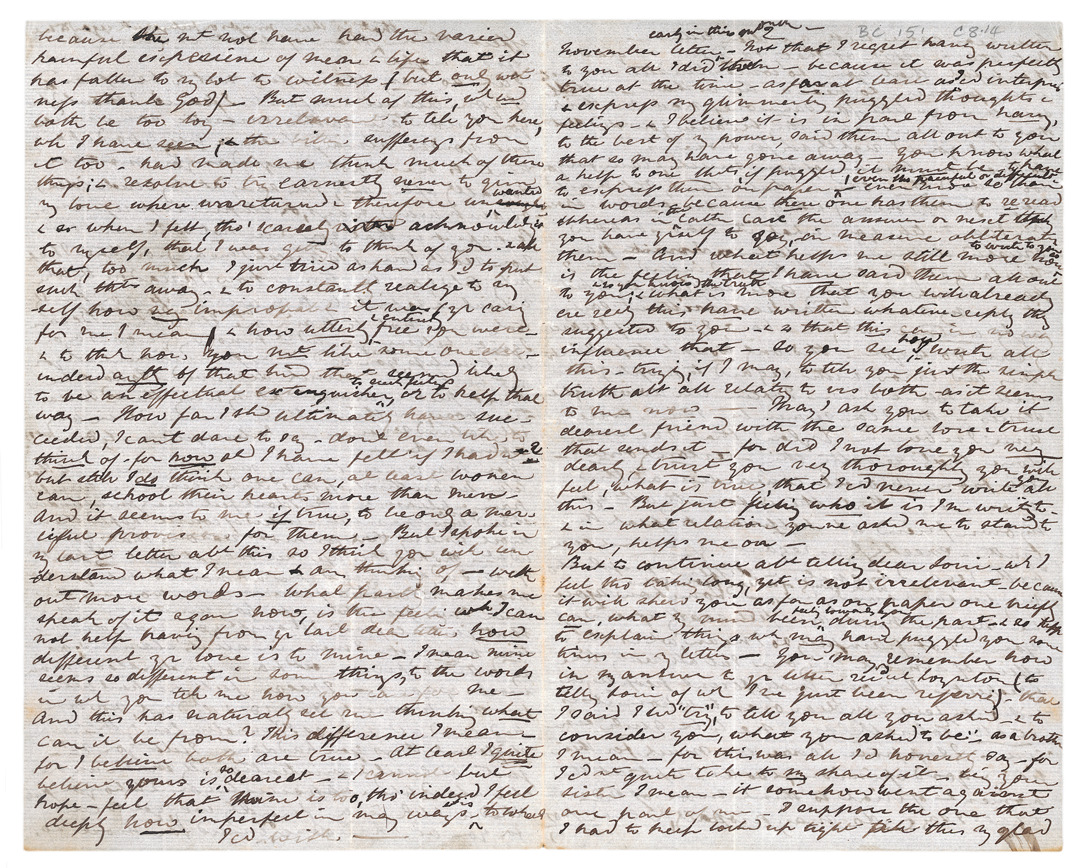 because she mt not have had the varied
painful experience of men & life that it
has fallen to my lot to witness (but only wit
ness thank God) – But much of this, wd
both be too long – irrelevant to tell you here,
wh I have seen, & the sufferings from
it too had made me think much of these
things; & resolve to try earnestly never to give
my love where unreturned & therefore unwanted
& so when I felt, tho' scarcely acknowledged
to myself, that I was to think of you & all
that, too much I just tried as hard as I cd to put
such thts away – & to constantly realize to my
self how improper it was, yr caring
for me I mean & how utterly free you were
& to think how, you mt like some one else –
indeed of that kind seemed likely
to be an effectual extinguisher to such feelings or to help that
way – How far I shd ultimately have suc
ceeded, I can't dare to say – don't even like to
think of – for now at I have felt if I had
but still I do think one can, at least women
can, school their hearts more than men –
And it seems to me if true, to be only a mer
ciful provision for them – But I spoke in
my last letter abt this so I think you will un
derstand what I mean & am thinking of – with
out more words – What partly makes me
speak of it again now, is the feeling wh I can
not help having from yr last dear letter how
different yr love is to mine – I mean mine
seems so different in some things, to the words
in wh you tell me how you love me –
And this has naturally set me thinking what
can it be from? This difference I mean –
for I believe both are true – At least I quite
believe yours is so dearest – & I cannot but
hope – feel that mine is too, tho' indeed I feel
deeply how imperfect in many ways it is, to what
I cd wish –
BC '51 C8.14
early in this month –
November letter – Not that I regret having written
to you all I did then – because it was perfectly
true at the time – as far at least as I cd interpret
& express my glimmering puzzled thoughts &
feelings – & I believe it is in part from having,
to the best of my power, said them all out to you
that so many have gone away – You know what
a help to one that is, if puzzled, it must be to have
to express them on paper even tho' painful or difficult – even more so than
in words, because then one has them to reread
whereas in latter case the answer or next
you have yself to say, in measure obliterates
them – And what helps me still more now to write to you
is the feeling that I have said them all out
to you, & what is more that you will already
ere recg this have written whatever reply they
suggested to you – & so that this can in no way
influence that – so you see I now write all
this – trying, if I may, to tell you just the simple
truth abt all relates to us both as it seems
to me now – May I ask you to take it
dearest friend with the same love & trust
that sends it – for did I not love you very
dearly & trust you very thoroughly you will
feel, what is true, that I cd never write all
this – But just feeling who it is I'm writg to –
& in what relation you've asked me to stand to
you, helps me on –
But to continue abt telling dear Sori – wh I
feel tho' taking long, yet is not irrelevant because
it will shew you, as far as on paper one briefly
can, what my mind has been during the past – & so help
to explain things wh may have puzzled you some
times in my letter – You may remember how
in my answer to yr letter recd at Boynton (to
tellg Sori of wh I've just been referrg) – that
I said I wd "try" to tell you all you asked – & to
consider you, what you asked to be; as a brother
I mean – for this was all I cd honestly say – for
I cdnt quite take to my share of it – being yr
sister I mean – it somehow went against
one part of me I suppose the one that
I had to keep locked up tight – this my glad